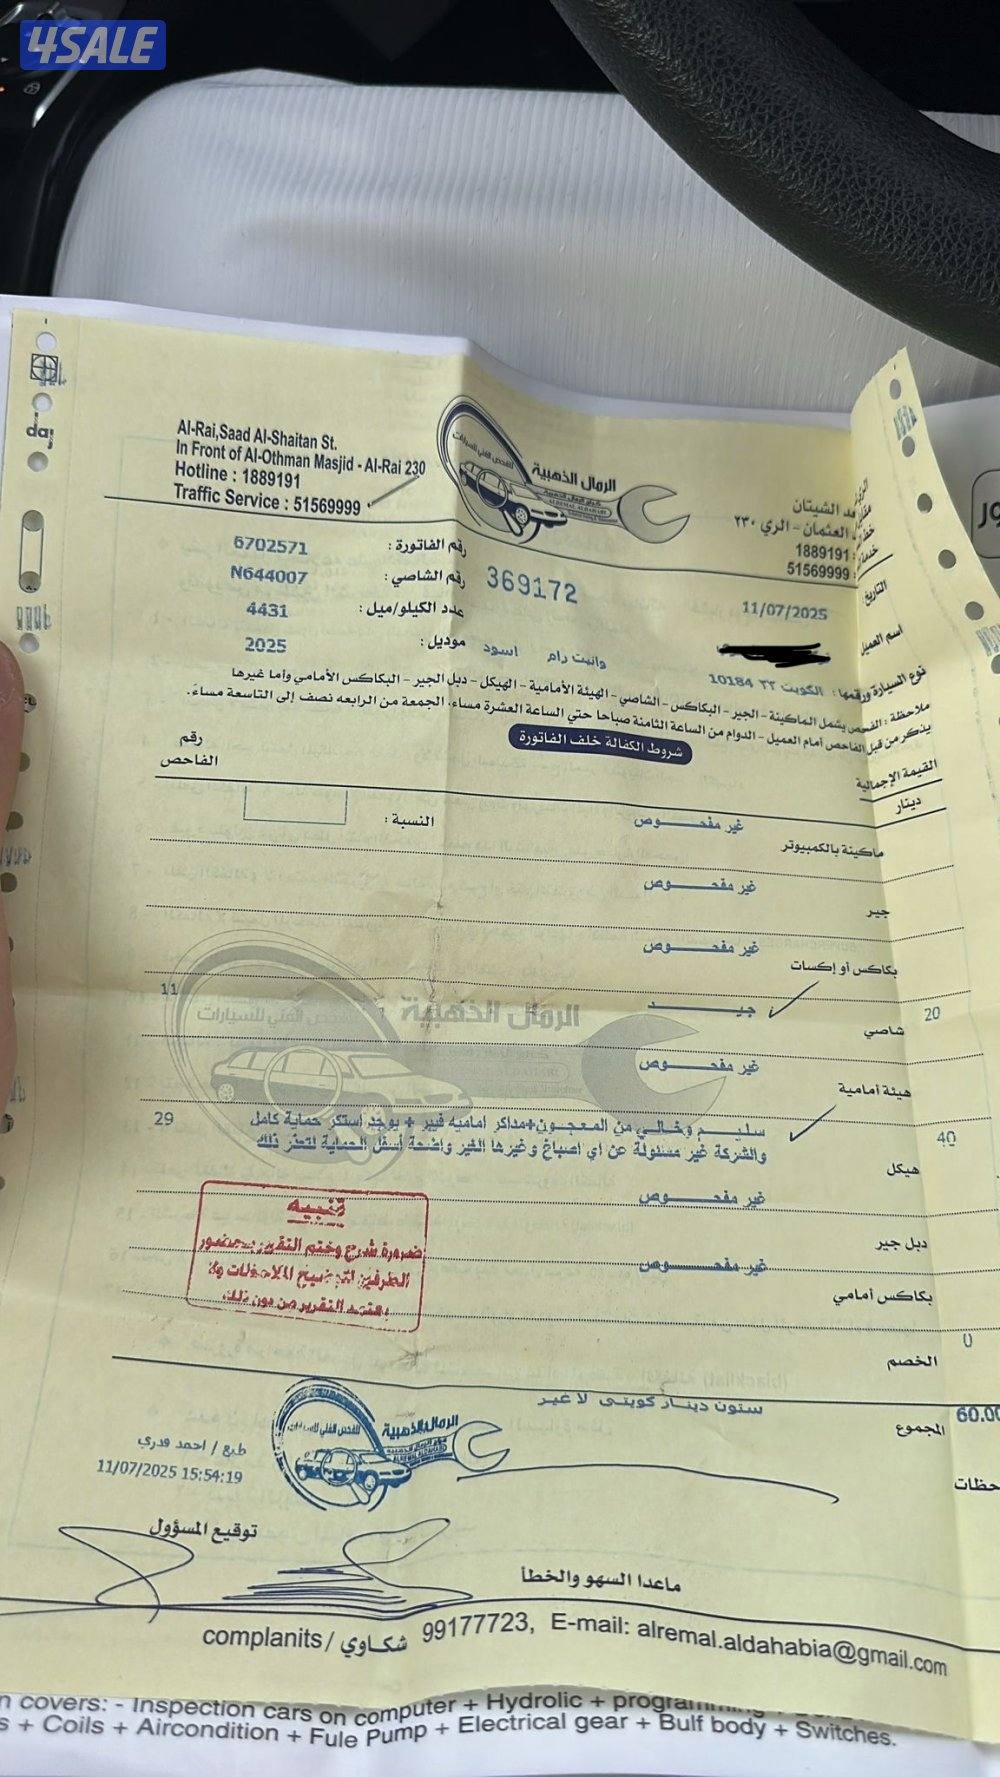 4SALE
Al-Rai,Saad Al-Shaitan St.
In Front of Al-Othman Masjid - Al-Rai 230
Hotline : 1889191
Traffic Service : 51569999
الرمال الذهبية
للفحص الفني للسيارات
ـد الشيتان
العثمان - الري ٢٣٠
1889191 :
51569999 :
رقم الفاتورة : 6702571
رقم الشاصي : N644007
369172
التاريخ: 11/07/2025
عدد الكيلو/ميل : 4431
اسم العميل
موديل : 2025
وانيت رام اسود
نوع السيارة ورقمها : الكويت ٣٣ 10184
ملاحظة : الفحص يشمل الماكينة - الجير - البكاكس - الشاصي - الهيئة الأمامية - الهيكل - دبل الجير - البكاكس الأمامي وأما غيرها
يذكر من قبل الفاحص أمام العميل - الدوام من الساعة الثامنة صباحا حتي الساعة العشرة مساء، الجمعة من الرابعه نصف إلى التاسعة مساءً.
شروط الكفالة خلف الفاتورة
القيمة الإجمالية
دينار
رقم
الفاحص
ماكينة بالكمبيوتر غير مفحوص النسبة :
جير غير مفحوص
بكاكس أو إكسات غير مفحوص
20 شاصي جيد 11
هيئة أمامية غير مفحوص
40 هيكل سليم وخالي من المعجون+مداكر اماميه فيبر + يوجد استكر حماية كامل 29
والشركة غير مسئولة عن اي اصباغ وغيرها الغير واضحة أسفل الحماية لتعذر ذلك
دبل جير غير مفحوص
بكاكس أمامي غير مفحوص
تنبيه
ضرورة شرح وختم التقرير بحضور
الطرفين لتوضيح الملاحظات ولا
يعتمد التقرير من دون ذلك
الخصم 0
المجموع 60.00
ستون دينار كويتى لا غير
حظات
الرمال الذهبية
للفحص الفني للسيارات
طبع / احمد قدري
11/07/2025 15:54:19
توقيع المسؤول
ماعدا السهو والخطأ
complanits/ شكاوي 99177723, E-mail: alremal.aldahabia@gmail.com
covers: - Inspection cars on computer + Hydrolic +
+ Coils + Aircondition + Fule Pump + Electrical gear + Bulf body + Switches.